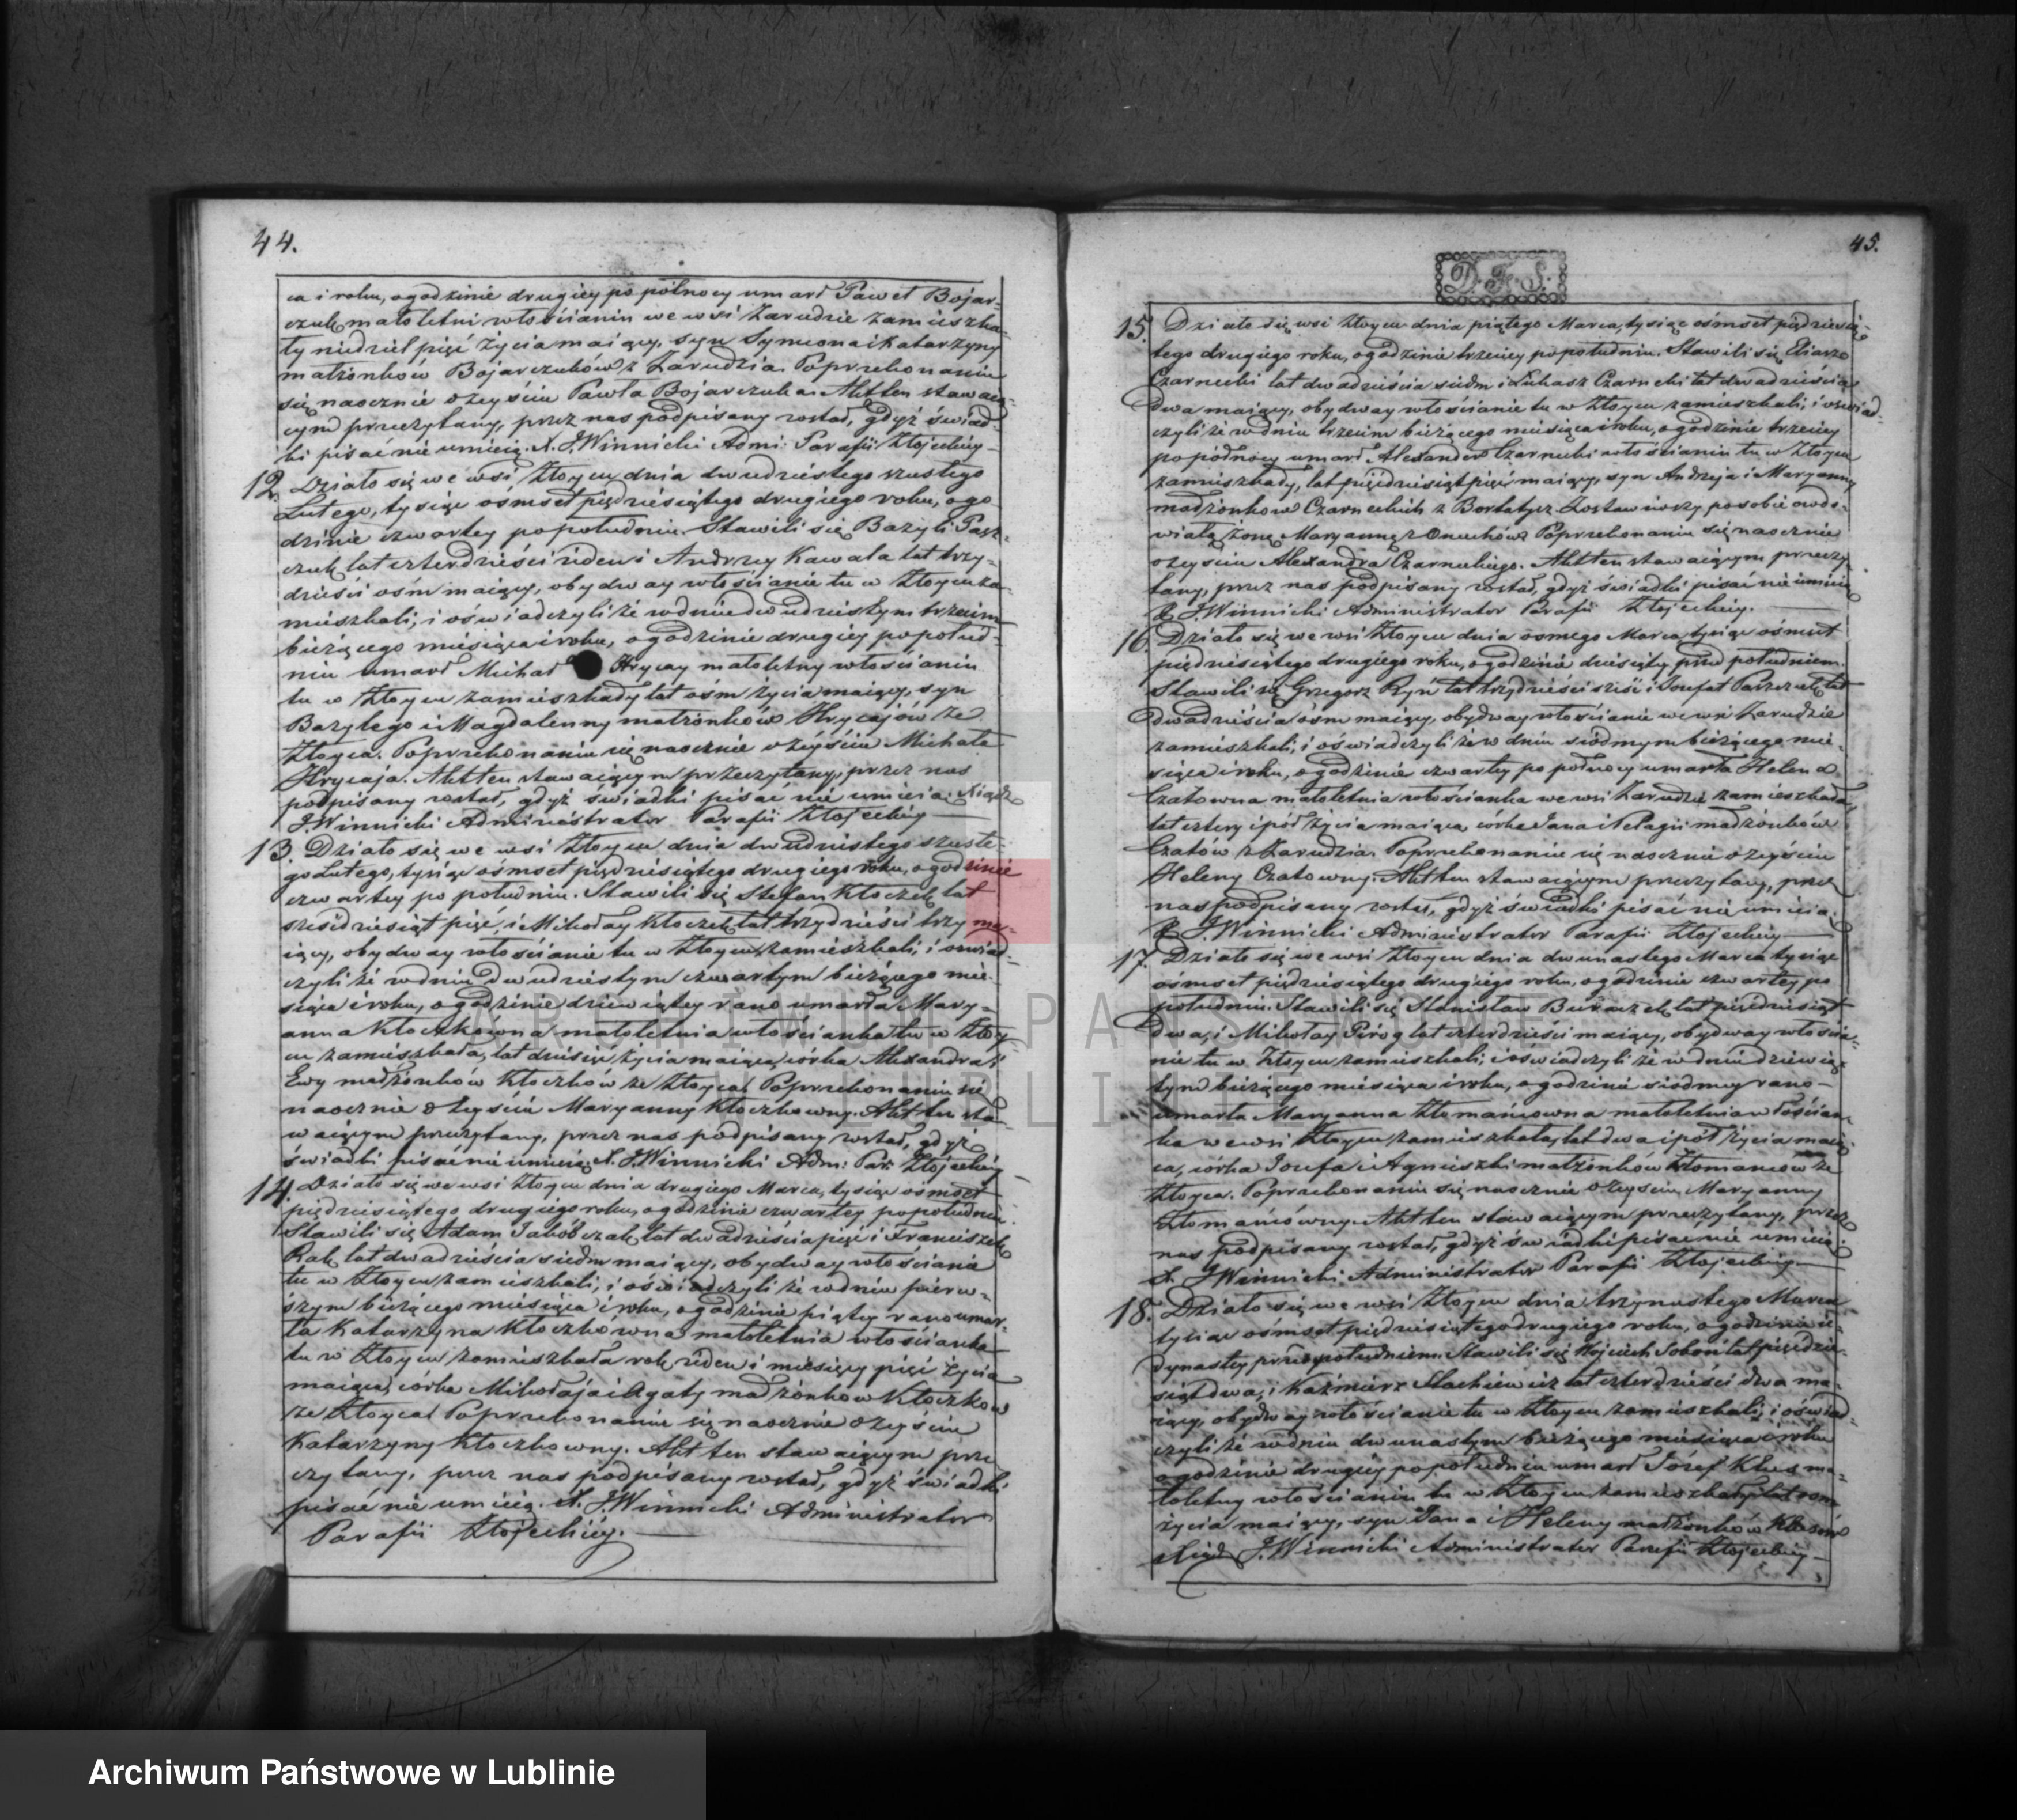 44.
ca i roku, o godzinie drugiey po pólnocy umarł Paweł Bojar-
czuk małoletni włościanin we wsi Zarudzie zamieszka-
ły niedziel pięć życia maiący, syn Symeona i Katarzyny
małżonków Bojarczuków z Zarudzia. Poprzekonaniu
się naocznie o zeyściu Pawła Bojarczuka. Akt ten stawaią-
cym przeczytany, przez nas podpisany został, gdyż świad-
ki pisać nie umieią. X. J. Winnicki Admi: Parafii Złojeckiey
12. Działo się we wsi Złoycu dnia dwudziestego szustego
Lutego, tysiąc osmset piędziesiątego drugiego roku, o go
dzinie czwartey po południu. Stawili się Bazyli Pasz-
czuk lat czterdzieści ieden i Andrzey Kawala lat trzy-
dzieści ośm maiący, obydway włościanie tu w Złoycu za-
mieszkali; i oświadczyli że w dniu dwudziestym trzecim
bieżącego miesiąca i roku, o godzinie drugiey po połud-
niu umarł Michał Hrycay małoletny włościanin
tu w Złoycu zamieszkały lat ośm życia maiący, syn
Bazylego i Magdalenny małżonków Hrycajów ze
Złoyca. Poprzekonaniu się naocznie o zeyściu Michała
Hrycaja. Akt ten stawaiącym przeczytany, przez nas
podpisany został, gdyż świadki pisać nie umieią. Xiądz
J. Winnicki Administrator Parafii Złojeckiey
13. Działo się we wsi Złoycu dnia dwudziestego szuste-
go Lutego, tysiąc ośmset piędziesiątego drugiego roku, o godzinie
czwartey po południu. Stawili się Stefan Kłoczek lat
sześdziesiąt pięć, i Mikołay Kłoczek lat trzydzieści trzy ma-
iący, obydway włościanie tu w Złoycu zamieszkali; i oswiad-
czyli że w dniu dwudziestym czwartym bieżącego mie-
siąca i roku, o godzinie dziewiątey rano umarła Mary-
anna Kłoczkówna małoletnia włościanka tu w Złoy-
cu zamieszkała, lat dziesięć życia maiąca, córka Alexandra i
Ewy małżonków Kłoczków ze Złoyca. Poprzekonaniu się
naocznie o zeyściu Maryanny Kłoczkowny. Akt ten sta-
waiącym przeczytany, przez nas podpisany został, gdyż
świadki pisać nie umieią. X. J. Winnicki Adm: Par: Złojeckiey
14. Działo się we wsi Złoycu dnia drugiego Marca, tysiąc osmset
piędziesiątego drugiego roku, o godzinie czwartey po południu.
Stawili się Adam Jakóbczak lat dwadzieścia pięć i Franciszek
Rak lat dwadzieścia siedm maiący, obydway włościanie
tu w Złoycu zamieszkali; i oświadczyli że w dniu pierw-
szym bieżącego miesiąca i roku, o godzinie piątey rano umar-
ła Katarzyna Kłoczkówna małoletnia włościanka
tu w Złoycu zamieszkała rok ieden i miesięcy pięć życia
maiąca, córka Mikołaja i Agaty małżonków Kłoczków
ze Złoyca. Poprzekonaniu się naocznie o zeyściu
Katarzyny Kłoczkowny. Akt ten stawaiącym prze
czytany, przez nas podpisany został, gdyż świadki
pisać nie umieią. X. J. Winnicki Administrator
Parafii Złojeckiey.
45.
D.F.S.
15. Działo się wsi Złoycu dnia piątego Marca, tysiąc ośmset piędziesią-
tego drugiego roku, o godzinie trzeciey po południu. Stawili się Eliasz
Czarnecki lat dwadzieścia siedm i Łukasz Czarnecki lat dwadzieścia
dwa maiący, obydway włościanie tu w Złoycu zamieszkali; i oswiad-
czyli że w dniu trzecim bieżącego miesiąca i roku, o godzinie trzeciey
po północy umarł Alexander Czarnecki włościanin tu w Złoycu
zamieszkały, lat pięćdziesiąt pięć maiący, syn Andrzeja i Maryanny
małżonków Czarneckich z Bortatycz. Zostawiwszy po sobie owdo-
wiałą żonę Maryannę z Onuchów. Poprzekonaniu się naocznie
o zeysciu Alexandra Czarneckiego. Akt ten stawaiącym przeczy-
tany, przez nas podpisany został, gdyż świadki pisac nie umieią
X. J. Winnicki Administrator Parafii Złojeckiey.
16. Działo się we wsi Złoycu dnia osmego Marca, tysiąc ośmset
pięدziesiątego drugiego roku, o godzinie dziesiątey przed południem.
Stawili się Grzegorz Ryń lat trzydzieści sześć i Jozefat Paszczuk lat
dwadzieścia ośm maiący, obydway włościanie we wsi Zarudzie
zamieszkali; i oświadczyli że w dniu siódmym bieżącego mie-
siąca i roku, o godzinie czwartey po północy umarła Helena
Czatowna małoletnia włościanka we wsi Zarudzie zamieszkała,
lat cztery i pół życia maiąca, córka Jana i Pelagii małżonków
Czatów z Zarudzia. Poprzekonaniu się naocznie o zeyściu
Heleny Czatowny. Akt ten stawaiącym przeczytany, przez
nas podpisany został, gdyż świadki pisać nie umieią.
X. J. Winnicki Administrator Parafii Złojeckiey
17. Działo się we wsi Złoycu dnia dwunastego Marca tysiąc
ośmset piędziesiątego drugiego roku, o godzinie czwartey po
południu. Stawili się Stanisław Buraczek lat pięśdziesiąt
dwa, i Mikołay Piróg lat czterdzieści maiący, obydway włościa-
nie tu w Złoycu zamieszkali; i oświadczyli że w dniu dziewią-
tym bieżącego miesiąca i roku, o godzinie siodmey rano
umarła Maryanna Złomańcowna małoletnia włościan-
ka we wsi Złoycu zamieszkała, lat dwa i pół życia maią-
ca, córka Jozefa i Agnieszki małżonków Złomańców ze
Złoyca. Poprzekonaniu się naocznie o zeyściu Maryanny
Złomańcówny. Akt ten stawaiącym przeczytany, przez
nas podpisany został, gdyż świadki pisać nie umieią.
X. J. Winnicki Administrator Parafii Złojeckiey
18. Działo się we wsi Złoycu dnia trzynastego Marca
tysiąc ośmset piędziesiątego drugiego roku, o godzinie ie-
dynastey przed południem. Stawili się Woyciech Soboń lat pięśdzie-
siąt dwa, i Kaźmierz Stachiewicz lat czterdzieści dwa ma-
iący, obydway włościanie tu w Złoycu zamieszkali; i oświad-
czyli że w dniu dwunastym bieżącego miesiąca i roku
o godzinie drugiey po południu umarł Jozef Kłus ma-
łoletny włościanin tu w Złoycu zamieszkały, lat
życia maiący, syn Jana i Heleny małżonków Kłusów
Xiądz J. Winnicki Administrator Parafii Złojeckiey
ARCHIWUM PAŃSTWOWE
W LUBLINIE
Archiwum Państwowe w Lublinie